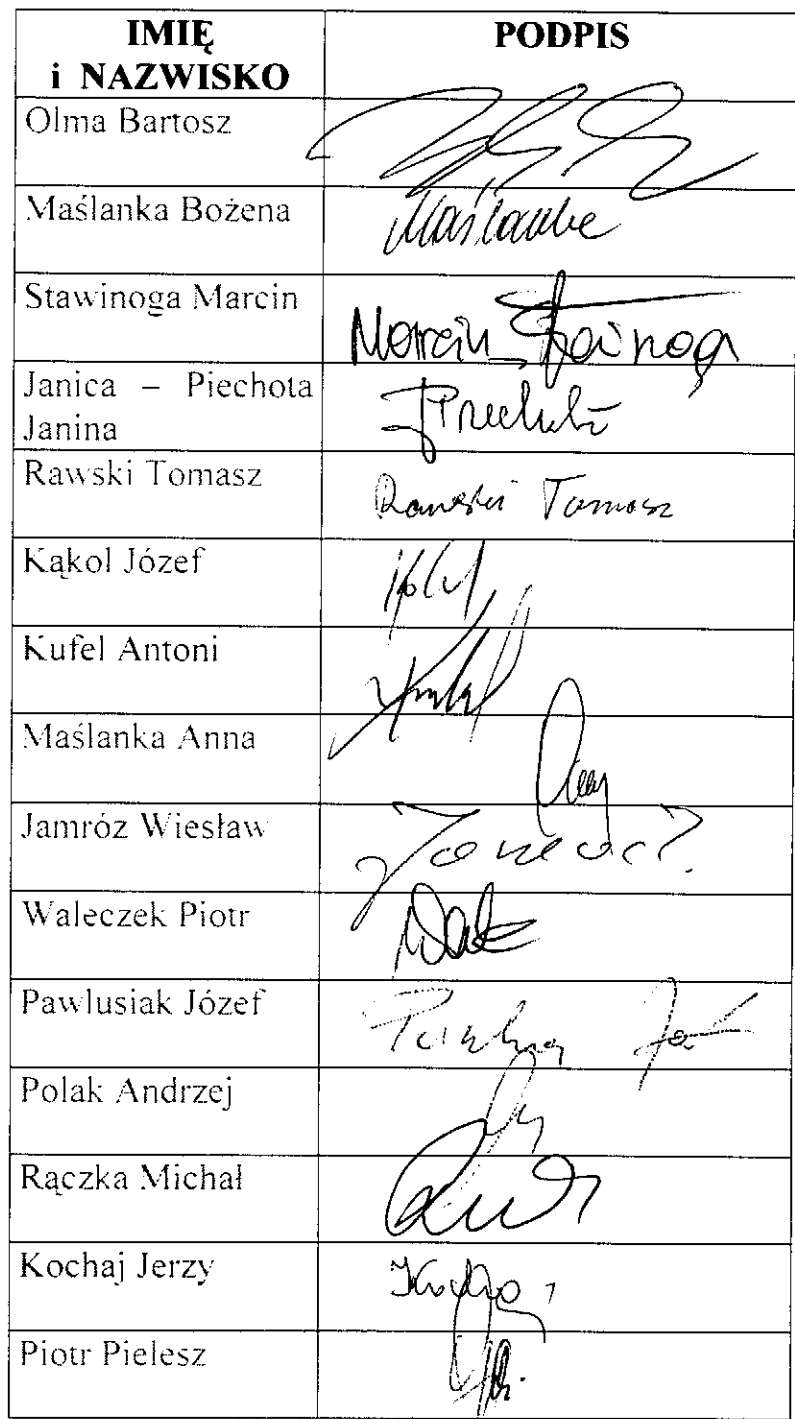 IMIĘ PODPIS
i NAZWISKO
Olma Bartosz
Maślanka Bożena Maślanka
Stawinoga Marcin Marcin Stawinoga
Janica – Piechota
Janina
Rawski Tomasz Rawski Tomasz
Kąkol Józef
Kufel Antoni
Maślanka Anna
Jamróz Wiesław
Waleczek Piotr
Pawlusiak Józef
Polak Andrzej
Rączka Michał
Kochaj Jerzy Kochaj
Piotr Pielesz